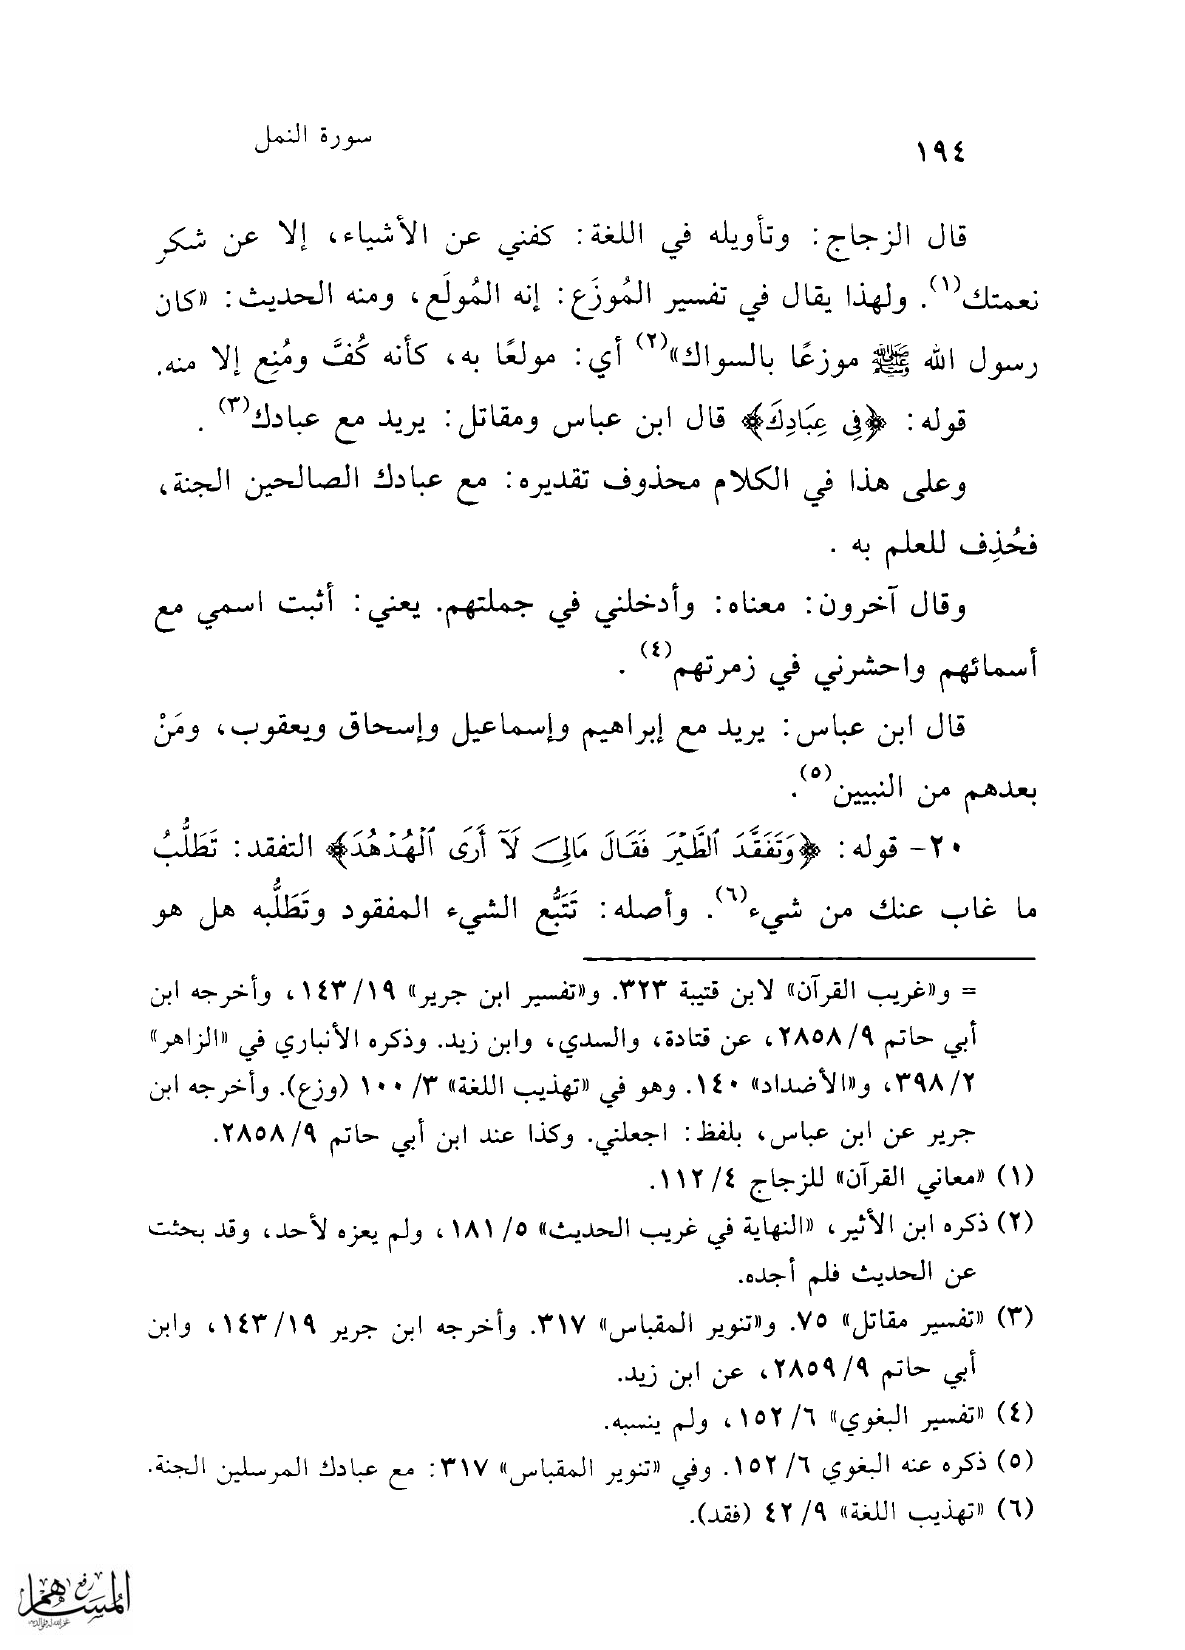 ١٩٤
سورة النمل
قال الزجاج: وتأويله في اللغة: كفني عن الأشياء، إلا عن شكر
نعمتك(١). ولهذا يقال في تفسير المُوزَع: إنه المُولَع، ومنه الحديث: «كان
رسول الله ﷺ موزعًا بالسواك»(٢) أي: مولعًا به، كأنه كُفَّ ومُنِع إلا منه.
قوله: ﴿فِي عِبَادِكَ﴾ قال ابن عباس ومقاتل: يريد مع عبادك(٣).
وعلى هذا في الكلام محذوف تقديره: مع عبادك الصالحين الجنة،
فحُذِف للعلم به.
وقال آخرون: معناه: وأدخلني في جملتهم. يعني: أثبت اسمي مع
أسمائهم واحشرني في زمرتهم(٤).
قال ابن عباس: يريد مع إبراهيم وإسماعيل وإسحاق ويعقوب، ومَنْ
بعدهم من النبيين(٥).
٢٠- قوله: ﴿وَتَفَقَّدَ ٱلطَّيْرَ فَقَالَ مَالِيَ لَآ أَرَى ٱلْهُدْهُدَ﴾ التفقد: تَطَلُّبُ
ما غاب عنك من شيء(٦). وأصله: تَتَبُّع الشيء المفقود وتَطَلُّبه هل هو
= و«غريب القرآن» لابن قتيبة ٣٢٣. و«تفسير ابن جرير» ١٩/ ١٤٣، وأخرجه ابن
أبي حاتم ٩/ ٢٨٥٨، عن قتادة، والسدي، وابن زيد. وذكره الأنباري في «الزاهر»
٢/ ٣٩٨، و«الأضداد» ١٤٠. وهو في «تهذيب اللغة» ٣/ ١٠٠ (وزع). وأخرجه ابن
جرير عن ابن عباس، بلفظ: اجعلني. وكذا عند ابن أبي حاتم ٩/ ٢٨٥٨.
(١) «معاني القرآن» للزجاج ٤/ ١١٢.
(٢) ذكره ابن الأثير، «النهاية في غريب الحديث» ٥/ ١٨١، ولم يعزه لأحد، وقد بحثت
عن الحديث فلم أجده.
(٣) «تفسير مقاتل» ٧٥. و«تنوير المقباس» ٣١٧. وأخرجه ابن جرير ١٩/ ١٤٣، وابن
أبي حاتم ٩/ ٢٨٥٩، عن ابن زيد.
(٤) «تفسير البغوي» ٦/ ١٥٢، ولم ينسبه.
(٥) ذكره عنه البغوي ٦/ ١٥٢. وفي «تنوير المقباس» ٣١٧: مع عبادك المرسلين الجنة.
(٦) «تهذيب اللغة» ٩/ ٤٢ (فقد).